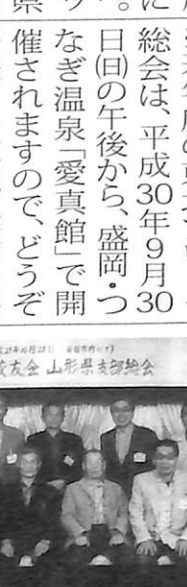 総会は、平成30年9月30
日(日)の午後から、盛岡・つ
なぎ温泉「愛真館」で開
催されますので、どうぞ
校友会 山形県支部総会